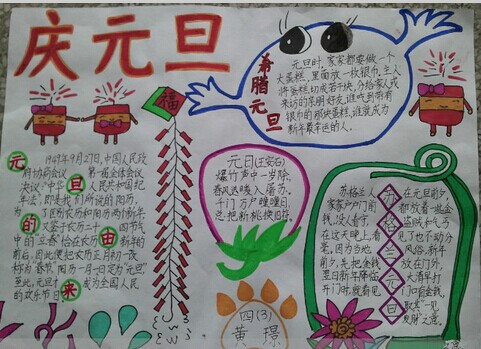 庆元旦
元旦的由来
1949年9月27日,中国人民政
府协商会议 第一届全体会议
决议:"中华 人民共和国纪
年法",即是我们所说的阳历,
为了区别农历和阳历两个新年,
又鉴于农历二十 四节气
中的"立春"恰在农历 新年的
前后,因此便把农历正月初一改
称为"春节",阳历一月一日定为"元旦",
至此,元旦 成为全国人民
的欢乐节日
福
希腊元旦
元旦时,家家都要做一个
大蛋糕,里面放一枚银币,主人
将蛋糕切成若干块,分给家人或
来访的亲朋好友,谁吃到带有
银币的那块蛋糕,谁就成为
新年最幸运的人。
元日(王安石)
爆竹声中一岁除,
春风送暖入屠苏。
千门万户曈曈日,
总把新桃换旧符。
苏格兰元旦
苏格兰人
家家户户门前
钱,没人看守,
在这天晚上,看
毫,因为当地
前夕,先把金钱
翌日新年降临
开门时,就看见
在元旦前夕
都放着一些金
盗贼和乞丐
见了也不动分
风俗,新年
放在门外,
大清早打
门口有金钱,
取其"一见
发财"之意。
四(3)
黄璟